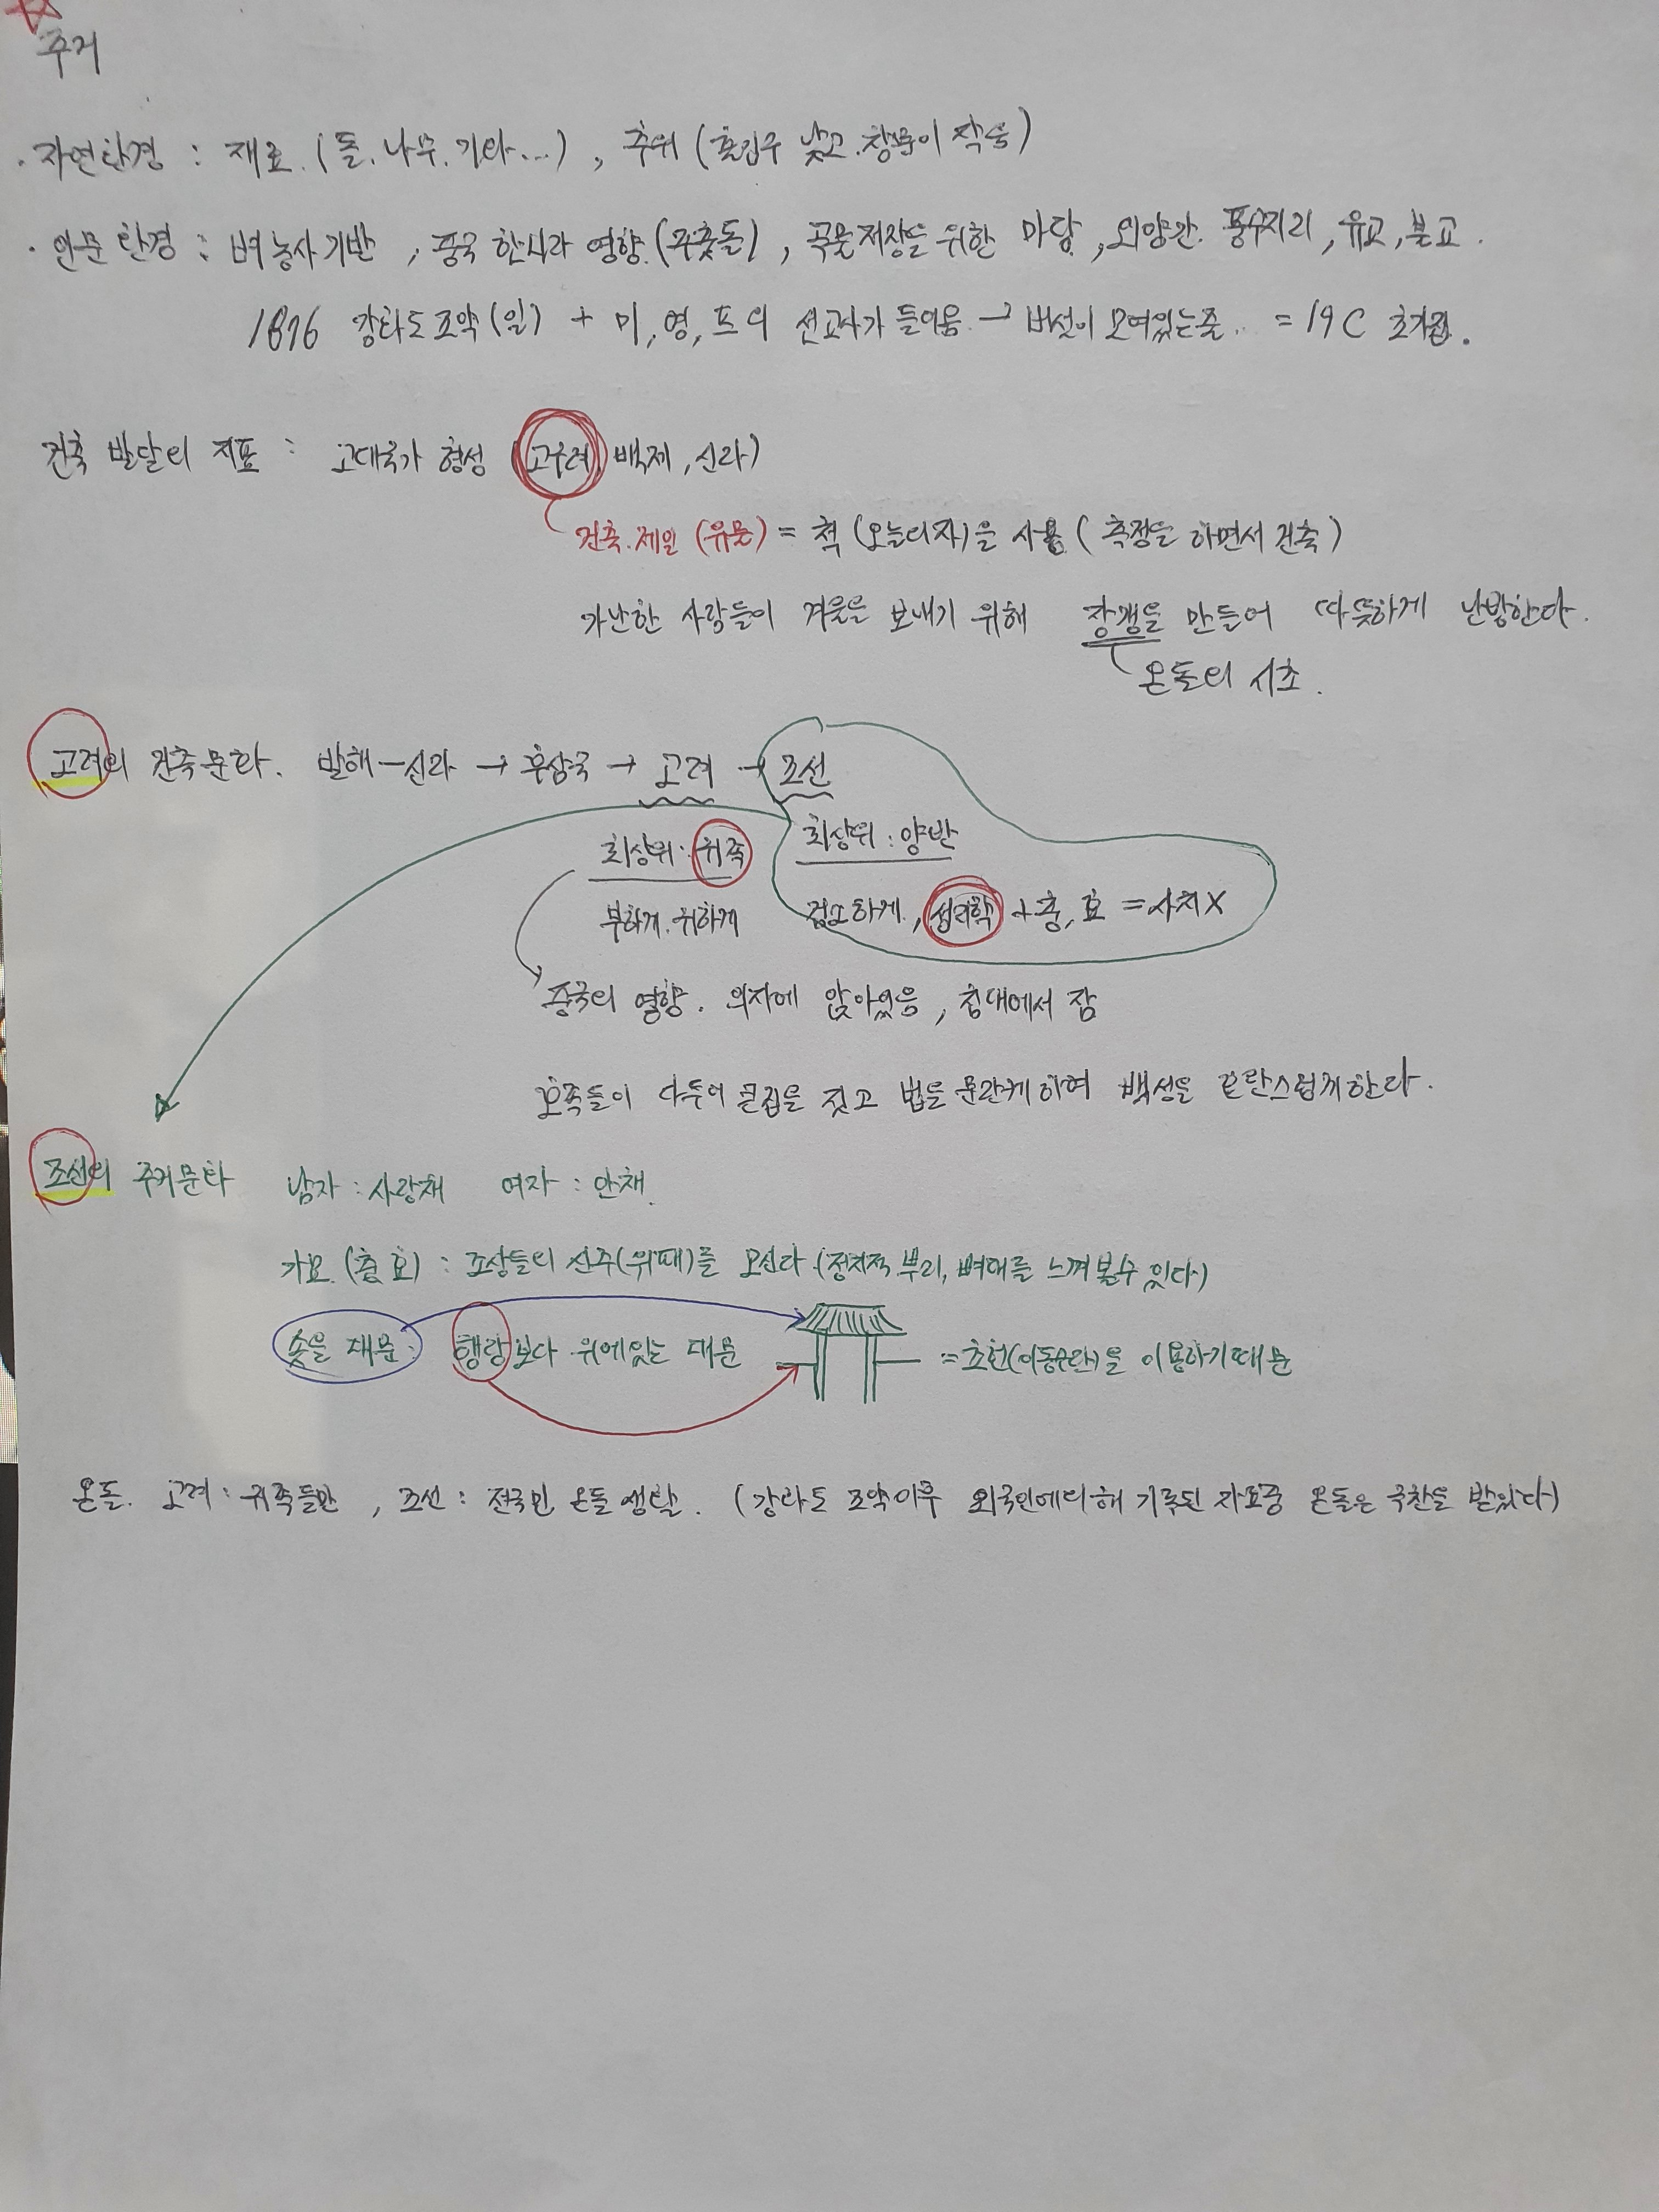 주거
· 자연환경 : 재료. (돌. 나무. 기와...) , 추위 (출입구 낮고. 창문이 작음)
· 인문 환경 : 벼농사 기반 , 중국 한시라 영향. (주춧돌) , 곡물저장을 위한 마당 , 외양간. 풍수지리 , 유교 , 불교 .
1876 강화도 조약(일) + 미, 영, 프의 선교사가 들어옴 → 버섯이 모여있는줄... = 19C 초가집.
건축 발달의 지표 : 고대국가 형성 (고구려, 백제 , 신라)
건축. 제일 (유물) = 척 (오늘의자)을 사용 ( 측정을 하면서 건축 )
가난한 사람들이 겨울을 보내기 위해 장갱을 만들어 따뜻하게 난방한다.
온돌의 시초 .
고려의 건축문화. 발해 - 신라 → 후삼국 → 고려 → 조선
최상위 : 귀족 최상위 : 양반
부하게. 귀하게 검소하게 , 성리학 + 충, 효 = 사치 X
중국의 영향 . 의자에 앉아있음 , 침대에서 잠
호족들이 다투어 큰집을 짓고 법을 문란케 하여 백성을 혼란스럽게 한다 .
조선의 주거문화 남자 : 사랑채 여자 : 안채.
가묘. (충, 효) : 조상들의 신주(위패)를 모신다. (정치적 뿌리, 뼈대를 느껴 볼수 있다)
솟을 대문 : 행랑보다 위에있는 대문 = 초헌(이동수단)을 이용하기때문
온돌. 고려 : 귀족들만 , 조선 : 전국민 온돌 생활. (강화도 조약이후 외국인에의해 기록된 자료중 온돌은 극찬을 받았다)